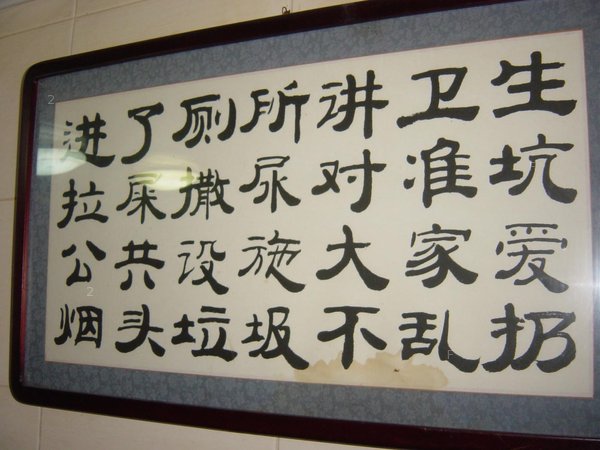 进了厕所讲卫生
拉屎撒尿对准坑
公共设施大家爱
烟头垃圾不乱扔